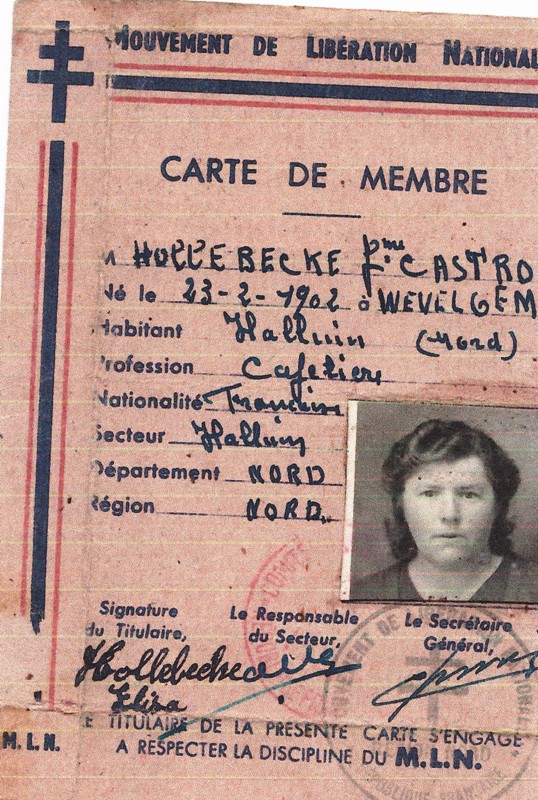 MOUVEMENT DE LIBÉRATION NATIONAL
CARTE DE MEMBRE
M HOLLEBECKE Fme CASTRO
Né le 23-2-1902 à WEVELGEM
Habitant Halluin (Nord)
Profession Cafetière
Nationalité Française
Secteur Halluin
Département NORD
Région NORD
Signature du Titulaire,
Le Responsable du Secteur,
Le Secrétaire Général,
Hollebecke
Elisa
LE TITULAIRE DE LA PRÉSENTE CARTE S'ENGAGE
A RESPECTER LA DISCIPLINE DU M.L.N.
M.L.N.
COMITÉ
MOUVEMENT DE
RÉPUBLIQUE FRANÇAISE